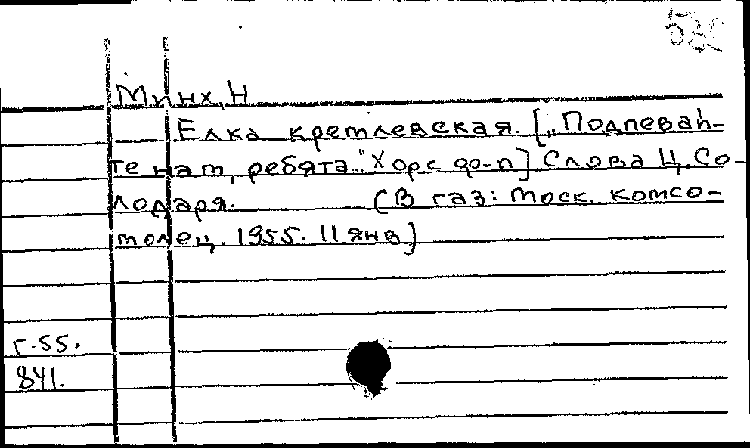 Минх, Н
Елка кремлевская. [„Подпевай-
те нам, ребята..." Хор с ф-п] Слова Ц. Со-
лодаря. (В газ: Моск. комсо-
молец. 1955. 11 янв.)
г.55.
841.